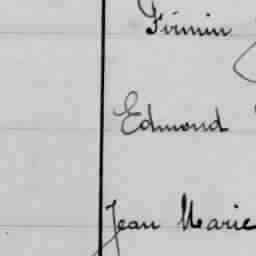 Firmin
Edmond
Jean Marie